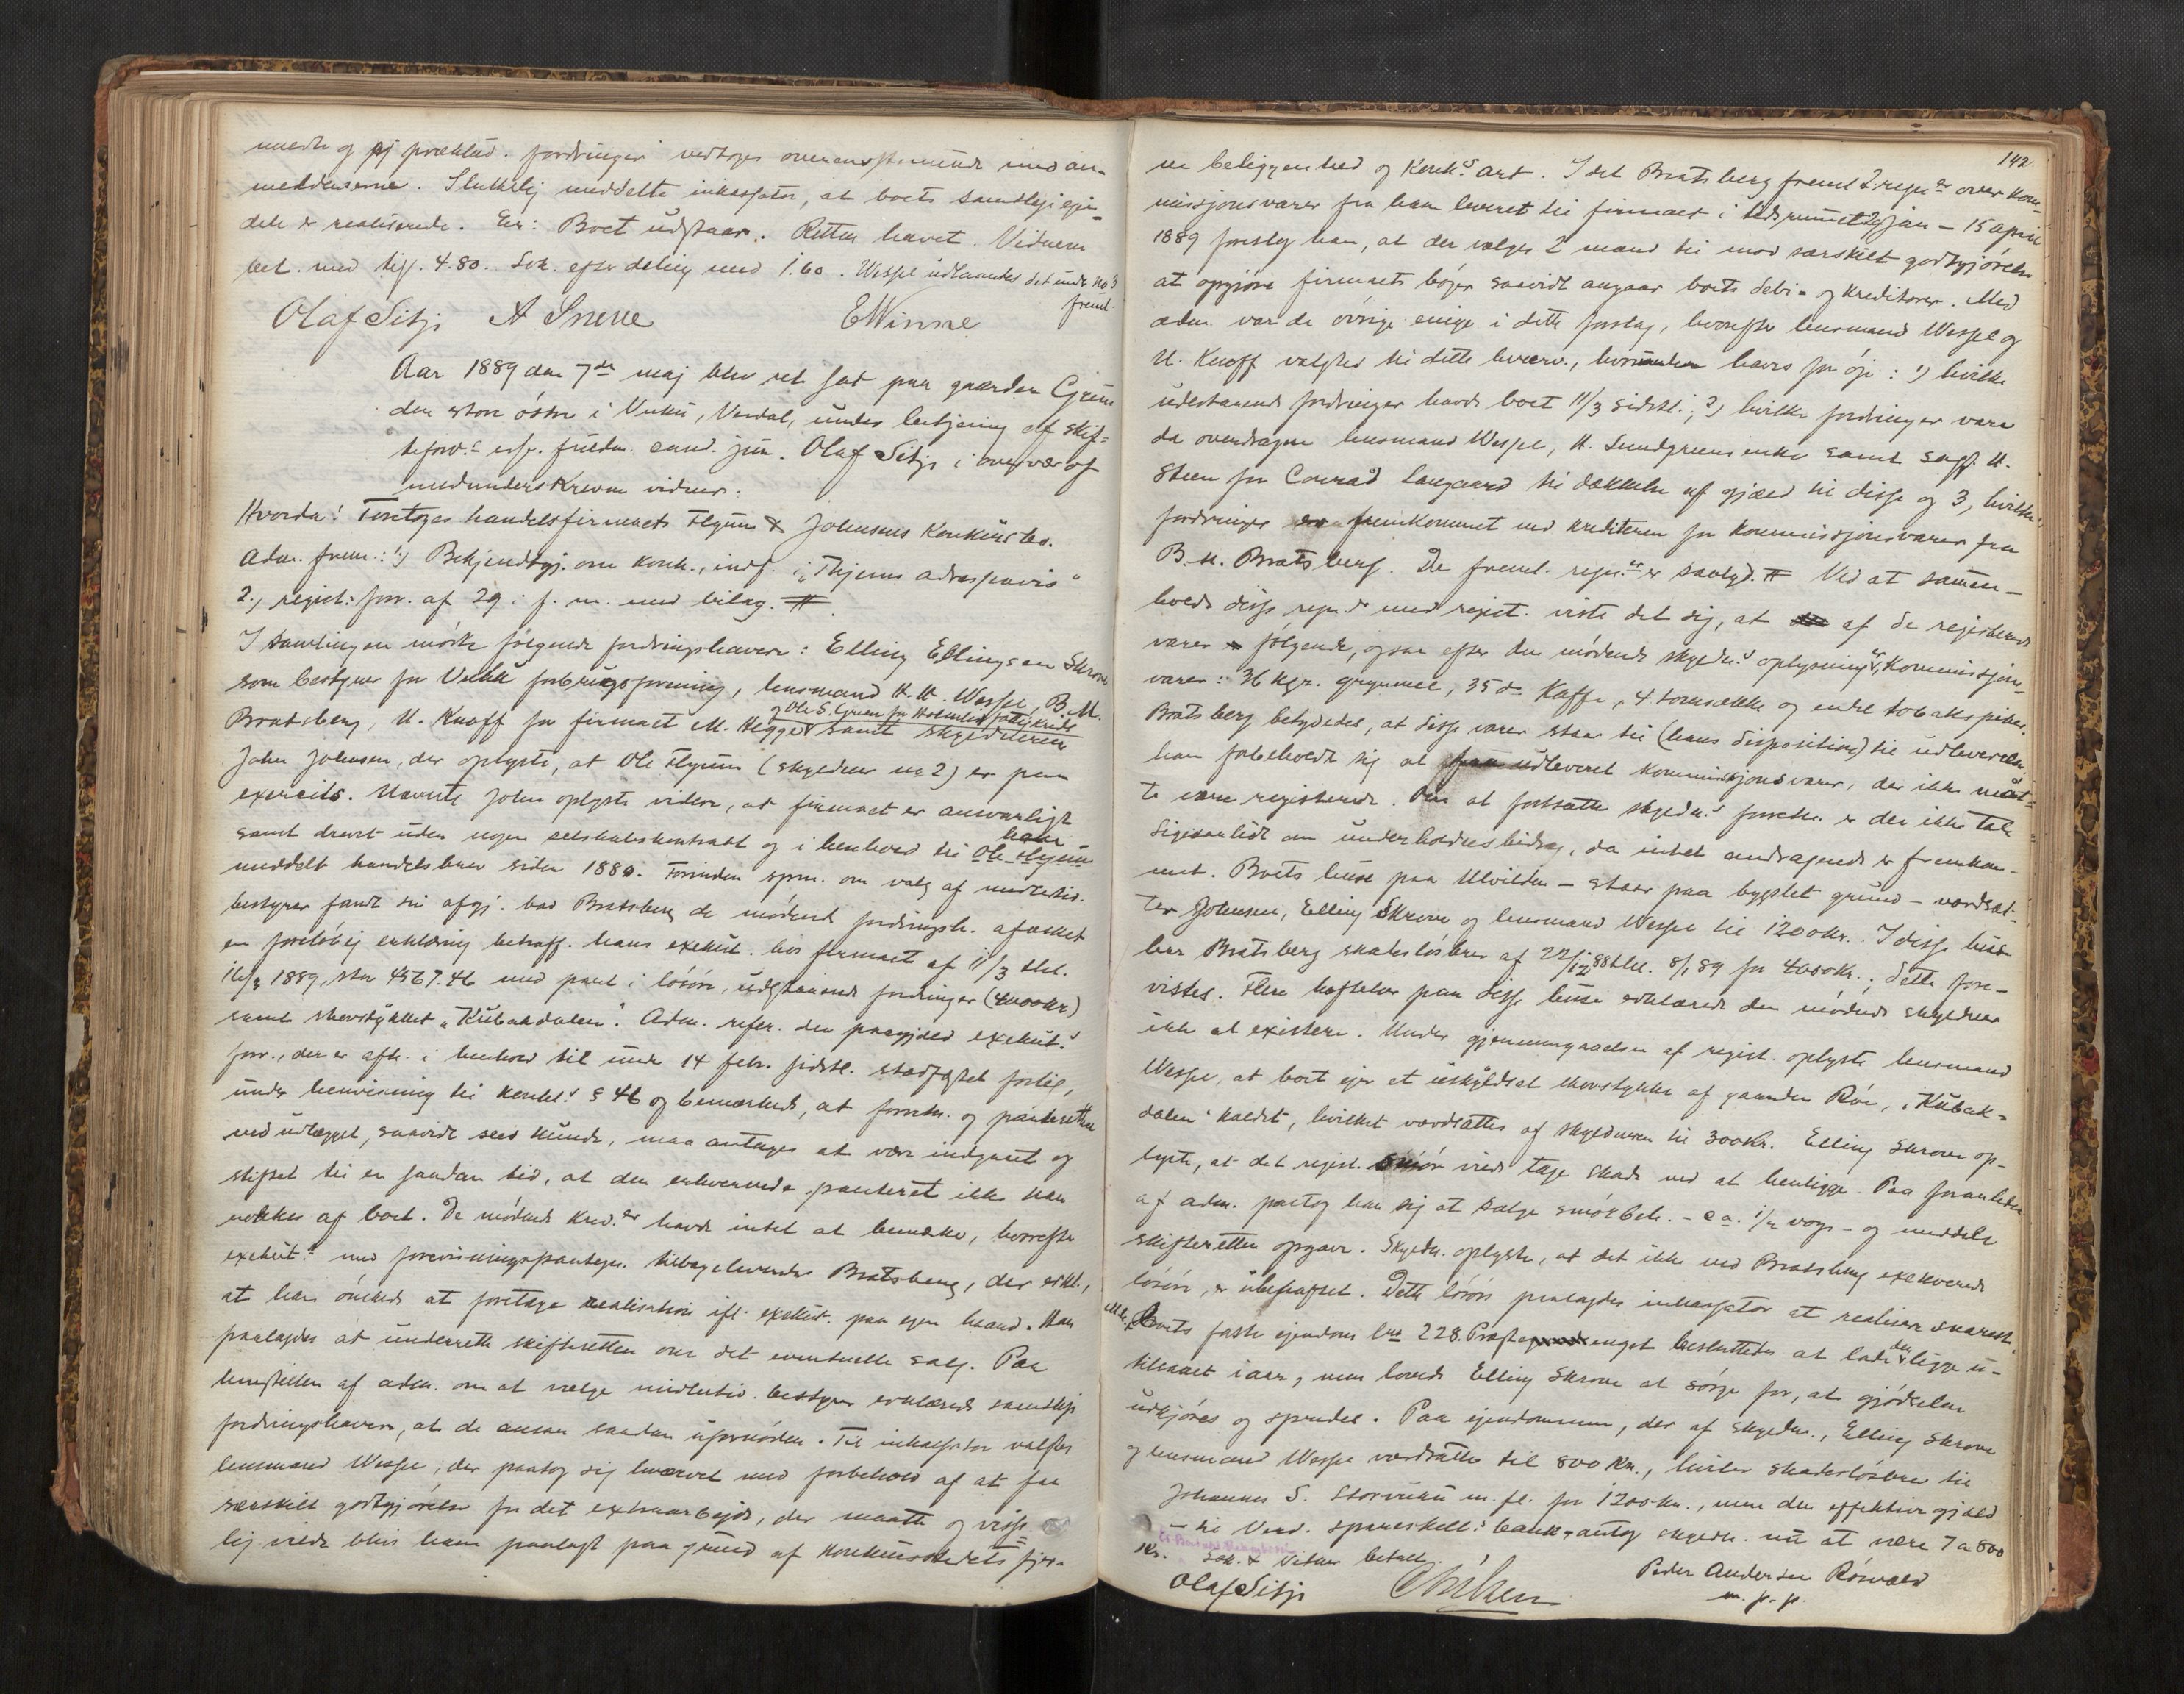 og ej præklud. fordringer vedtoges overensstemmende med an-
meldelserne. Sluttelig meddelte inkassator, at boets samtlige ejen-
dele er realiserede. Er: Boet udstaar. Retten hævet. Vidnerne
bet. med tils. 4.80. Sek. efter deling med 1.60. Wessel udlaantes det under No 3
freml.
Olaf Sitje A Snerve E Winne
Aar 1889 den 7de maj blev ret sat paa gaarden Grun
den store östre i Vuku, Verdal, under betjening af skif-
teforv.s efter fuldm. cand. jur. Olaf Sitje i overvær af
medunderskrevne vidner.
Hvorda: Foretoges handelsfirmaets Flyum & Johnsens Konkursbo.
Adm. frem.: 1) Bekjendtgj. om konk., indf. i „Thjems adresseavis“
2., regist: forr. af 29 i f. m. med bilag. #
I samlingen mødte følgende fordringshavere: Elling Ellingsen Skrove
som bestyrer for Vukku forbrugsforening, lensmand H. H. Wessel, B. M.
og Ole S. Grunn for Holmlis fattigkreds
Bratsberg, U. Knoff for firmaet M. Hegge samt skyldneren
John Johnsen, der oplyste, at Ole Flyum (skyldner no 2) er paa
exercits. Nævnte John oplyste videre, at firmaet er ansvarligt
samt drevet uden nogen selskabskontrakt og i henhold til Ole Flyum
ham
meddelt handelsbrev siden 1880. Forinden spm. om valg af midlertid.
bestyrer fandt sin afgj. bad Bratsberg de mødende fordringsh. afæsket
en foreløbig erklæring betræff. hans exekut. hos firmaet af 11/3 thl.
16/3 1889, stor 4567.46 med pant i løsøre, udestaaende fordringer (4000kr)
samt skovstykket „Kubakdalen“. Adm. refer. den paagjeld. exekut.s
forr., der er afh. i henhold til under 14 febr. sidstl. stadfæstet forlig,
under henvisning til konkl.s § 46 og bemærkede, at forretn. og panteretten
ved udlægget, saavidt sees kunde, maa antages at være indgaaet og
stiftet til en saadan tid, at den erhvervede panteret ikke kan
rokkes af boet. De mødende kred.er havde intet at bemærke, hvorefter
exekut.s med forevisningspaategn. tilbageleveredes Bratsberg, der erkl.,
at han ønskede at foretage realisation ifl. exekut. paa egen haand. Han
paalagdes at underrette skifteretten om det eventuelle salg. Paa
henstillen af adm. om at vælge midlertid. bestyrer erklærede samtlige
fordringshavere, at de ansaa saadan ufornøden. Til inkassator valgtes
lensmand Wessel, der paatog sig hvervet med forbehold af at faa
særskilt godtgjørelse for det extraarbejde, der maatte og visse-
lig vilde blive ham paalagt paa grund af konkursstedets fjer-
142
ne beliggenhed og Konk.s art. I det Bratsberg freml. 2 regn.er over Kom-
missjonsvarer fra ham leveret til firmaet i tidsrummet 29 jan – 15 april
1889 foreslog han, at der valges 2 mænd til mod særskilt godtgjørelse
at opgjøre firmaets bøger saavidt angaar boets debi- og kreditorer. Med
adm. var de øvrige enige i dette forslag, hvorefter lensmand Wessel og
U. Knoff valgtes til dette hverv., hvorunder haves for øje: 1) hvilke
udestaaende fordringer havde boet 11/3 sidstl.; 2) hvilke fordringer vare
da overdragne lensmand Wessel, H. Lundgreens enke samt sagf. H.
Steen for Conrad Langaard til dækkelse af gjæld til disse og 3, hvilke
fordringer er fremkommet ved krediteren for kommissjonsvarer fra
B. M. Bratsberg. De freml. regn.er er saalyd. # Ved at sammen-
holde disse regn.er med regist. viste det sig, at af de registrerede
varer følgende, ogsaa efter den mødende skyldn.s oplysninger, Kommissjons-
varer: 36 kgr. grynmel, 35 do. Kaffe, 4 tomsække og endel tobakspiber.
Bratsberg betydedes, at disse varer staar til (hans disposition) til udleverelse,
han forbeholdt sig at faa udleveret kommissjonsvarer, der ikke maat-
te være registrerede. Om at fortsætte skyldn.s forretn. er der ikke tale
ligesaalidt om underholdnsbidrag, da intet andragende er fremkom-
met. Boets huse paa Ulvilden – staar paa bygslet grund – værdsat-
tes Johnsen, Elling Skrove og lensmand Wessel til 1200kr. I disse huse
har Bratsberg skadesløsbrev af 22/12 88 thl. 8/1 89 for 4000kr.; dette fore-
vistes. Flere hæftelser paa disse huse erklærede den mødende skyldner
ikke at existere. Under gjennemgaaelsen af regist. oplyste lensmand
Wessel, at boet ejer et uskyldsat skovstykke af gaarden Røe, „Kubak-
dalen“ kaldet, hvilket værdsattes af skyldneren til 300kr. Elling Skrove op-
lyste, at det regist. smør vilde tage skade ved at henligge. Paa foranledn.
af adm. paatog han sig at sælge smørbeh. – ca. 1/2 vog – og meddele
skifteretten opgave. Skyldn. oplyste, at det ikke ved Bratsberg exekverede
løsøre, er ubehæftet. Dette løsøre paalagdes inkassator at realisere snarest.
Boets faste ejendom lno 228. Præsteenget besluttedes at lade den ligge u-
tilsaaet i aar, men lovede Elling Skrove at sørge for, at gjødselen
udkjøres og spredes. Paa ejendommen, der af skyldn., Elling Skrove
og lensmand Wessel værdsattes til 800 kr., hviler skadesløsbrev til
Johannes S. Storvuku m. fl. for 1200kr., men den effektive gjæld
– til Verd. spareskill.s bank – antog skyldn. nu at være 7 a 800
kr. Sek. & Vidner betalt.
Olaf Sitje Peder Andersen Rösvald
m. p. p.